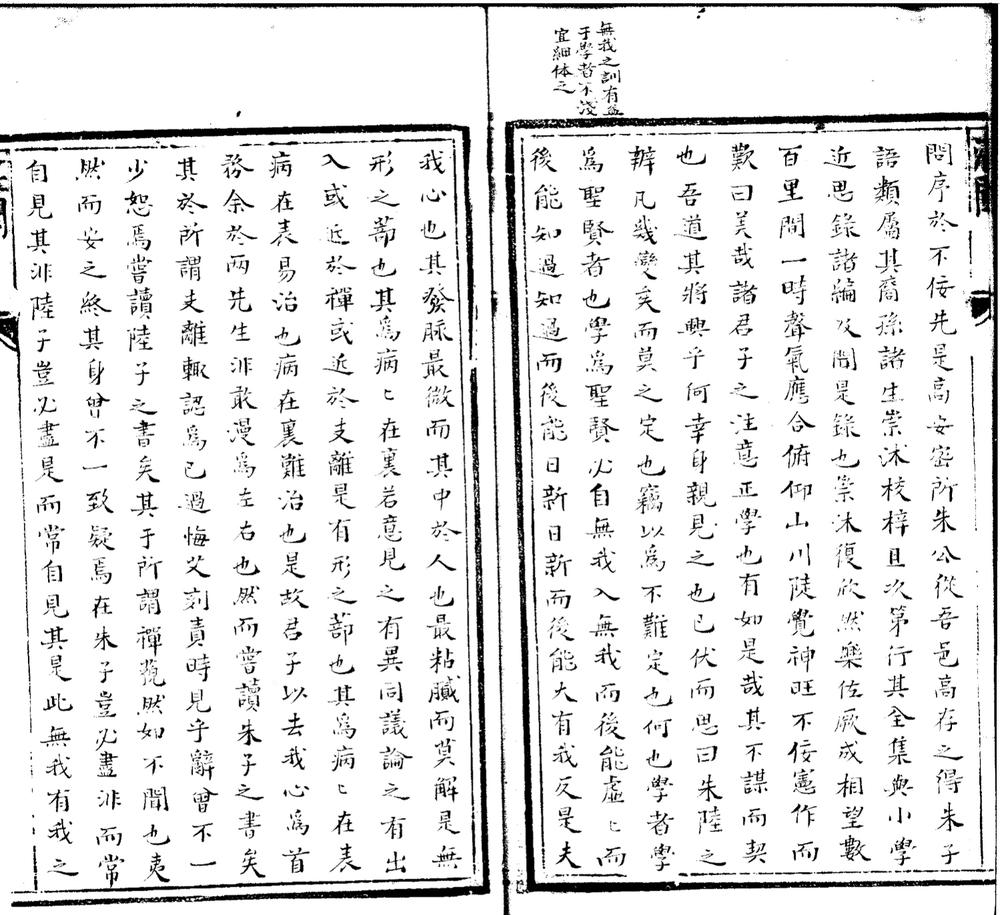 無我之訓有益
于學者不淺
宜細体之
問序於不佞先是高安密所朱公從吾邑高存之得朱子
語類屬其裔孫諸生崇沐校梓且次第行其全集與小學
近思錄諸編及聞是錄也崇沐復欣然樂佐厥成相望數
百里間一時聲氣應合俯仰山川陡覺神旺不佞憲作而
歎曰美哉諸君子之注意正學也有如是哉其不謀而契
也吾道其將興乎何幸身親見之也已伏而思曰朱陸之
辨凡幾變矣而莫之定也竊以為不難定也何也學者學
爲聖賢者也學爲聖賢必自無我入無我而後能虛〻而
後能知過知過而後能日新日新而後能大有我反是夫
我心也其發脉最微而其中於人也最粘膩而莫解是無
形之蔀也其爲病〻在裏若意見之有異同議論之有出
入或近於禪或近於支離是有形之蔀也其爲病〻在表
病在表易治也病在裏難治也是故君子以去我心爲首
務余於兩先生非敢漫爲左右也然而嘗讀朱子之書矣
其於所謂支離輒認爲已過悔艾刻責時見乎辭曾不一
少恕焉嘗讀陸子之書矣其于所謂禪藐然如不聞也夷
然而安之終其身曾不一致疑焉在朱子豈必盡非而常
自見其非陸子豈必盡是而常自見其是此無我有我之